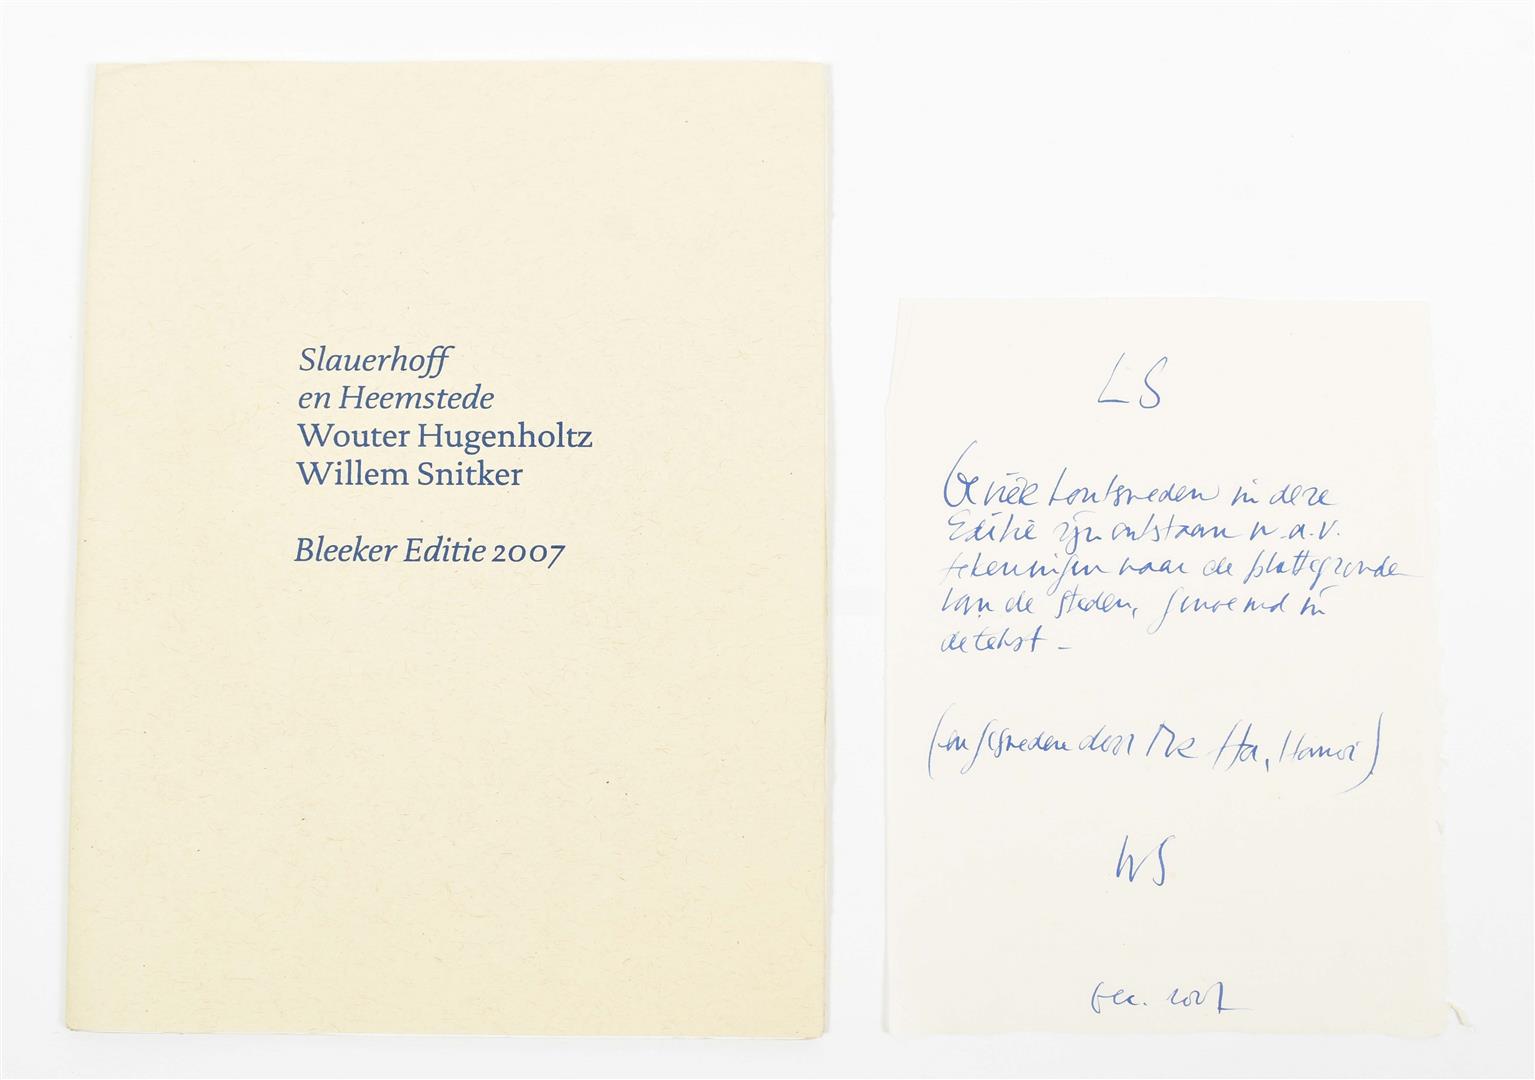 Slauerhoff
en Heemstede
Wouter Hugenholtz
Willem Snitker
Bleeker Editie 2007
LS
De vier houtsneden in deze
Editie zijn ontstaan n.a.v.
tekeningen naar de plattegronden
van de steden, genoemd in
de tekst –
(en gesneden door Ha, Hanoi)
WS
dec. 2007